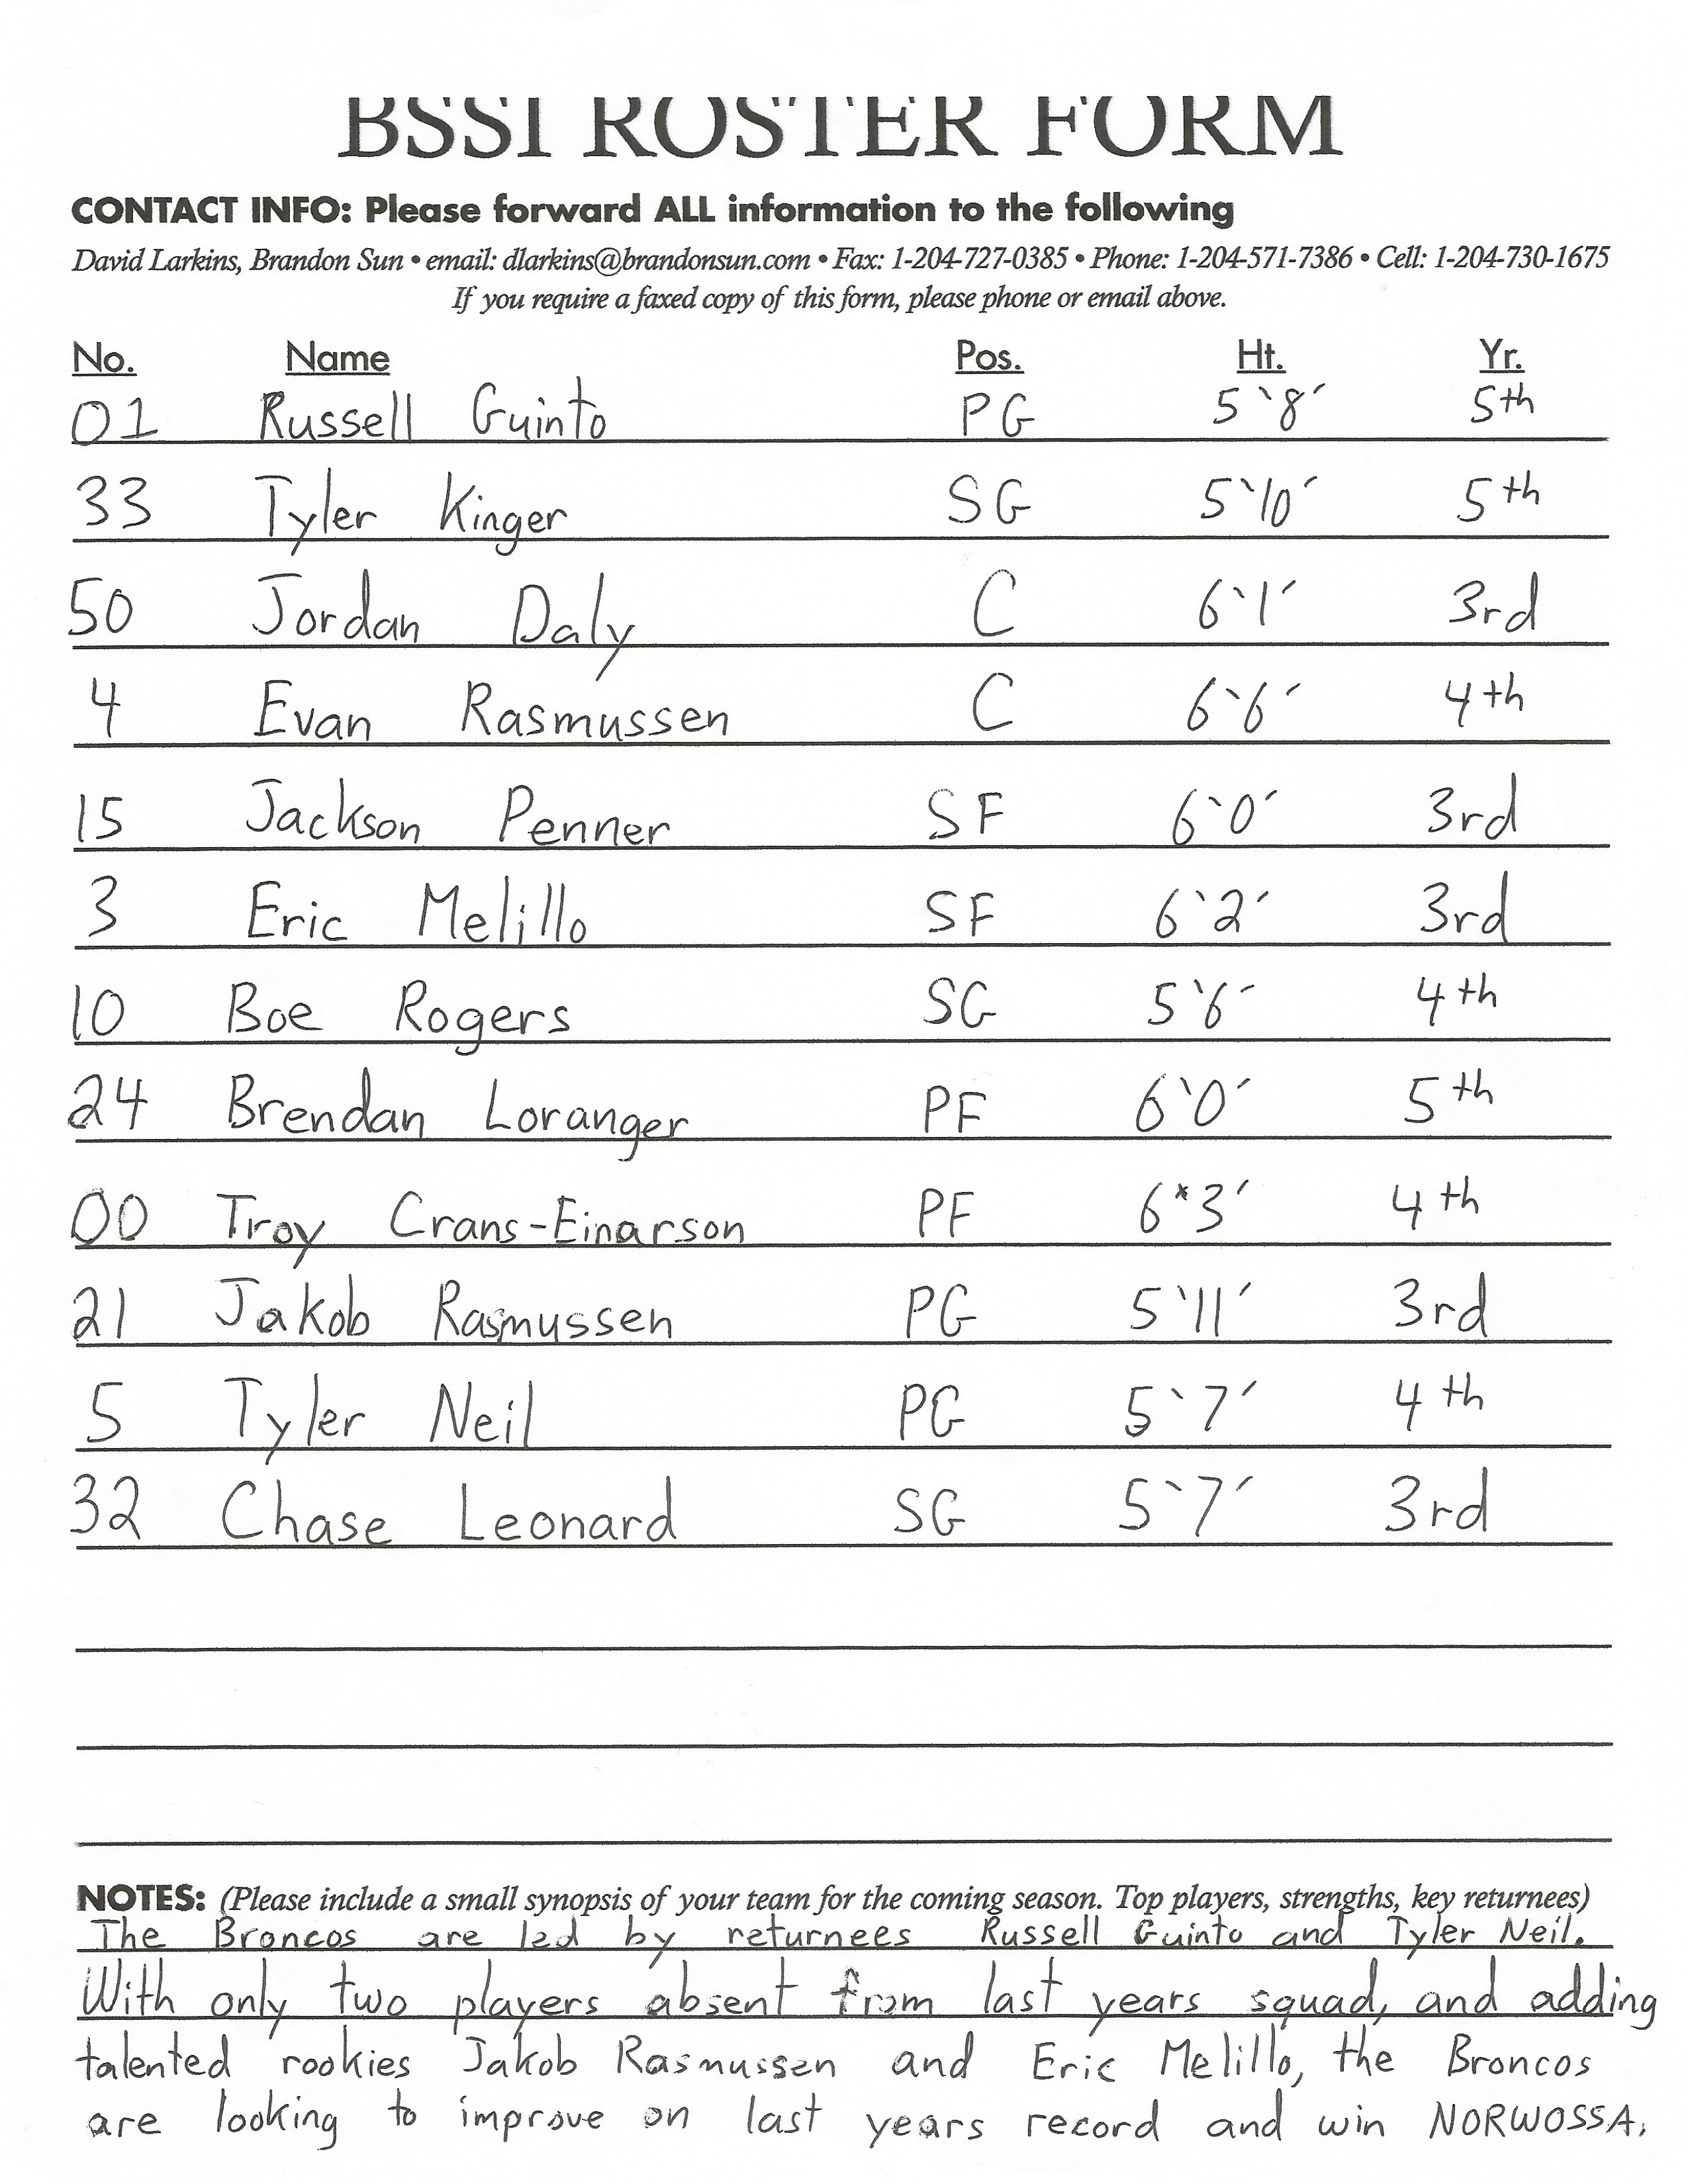 BSSI ROSTER FORM
CONTACT INFO: Please forward ALL information to the following
David Larkins, Brandon Sun • email: dlarkins@brandonsun.com • Fax: 1-204-727-0385 • Phone: 1-204-571-7386 • Cell: 1-204-730-1675
If you require a faxed copy of this form, please phone or email above.
No. Name Pos. Ht. Yr.
01 Russell Guinto PG 5`8´ 5th
33 Tyler Kinger SG 5`10´ 5th
50 Jordan Daly C 6`1´ 3rd
4 Evan Rasmussen C 6`6´ 4th
15 Jackson Penner SF 6`0´ 3rd
3 Eric Melillo SF 6`2´ 3rd
10 Boe Rogers SG 5`6´ 4th
24 Brendan Loranger PF 6`0´ 5th
00 Troy Crans-Einarson PF 6`3´ 4th
21 Jakob Rasmussen PG 5`11´ 3rd
5 Tyler Neil PG 5`7´ 4th
32 Chase Leonard SG 5`7´ 3rd
NOTES: (Please include a small synopsis of your team for the coming season. Top players, strengths, key returnees)
The Broncos are led by returnees Russell Guinto and Tyler Neil.
With only two players absent from last years squad, and adding
talented rookies Jakob Rasmussen and Eric Melillo, the Broncos
are looking to improve on last years record and win NORWOSSA.